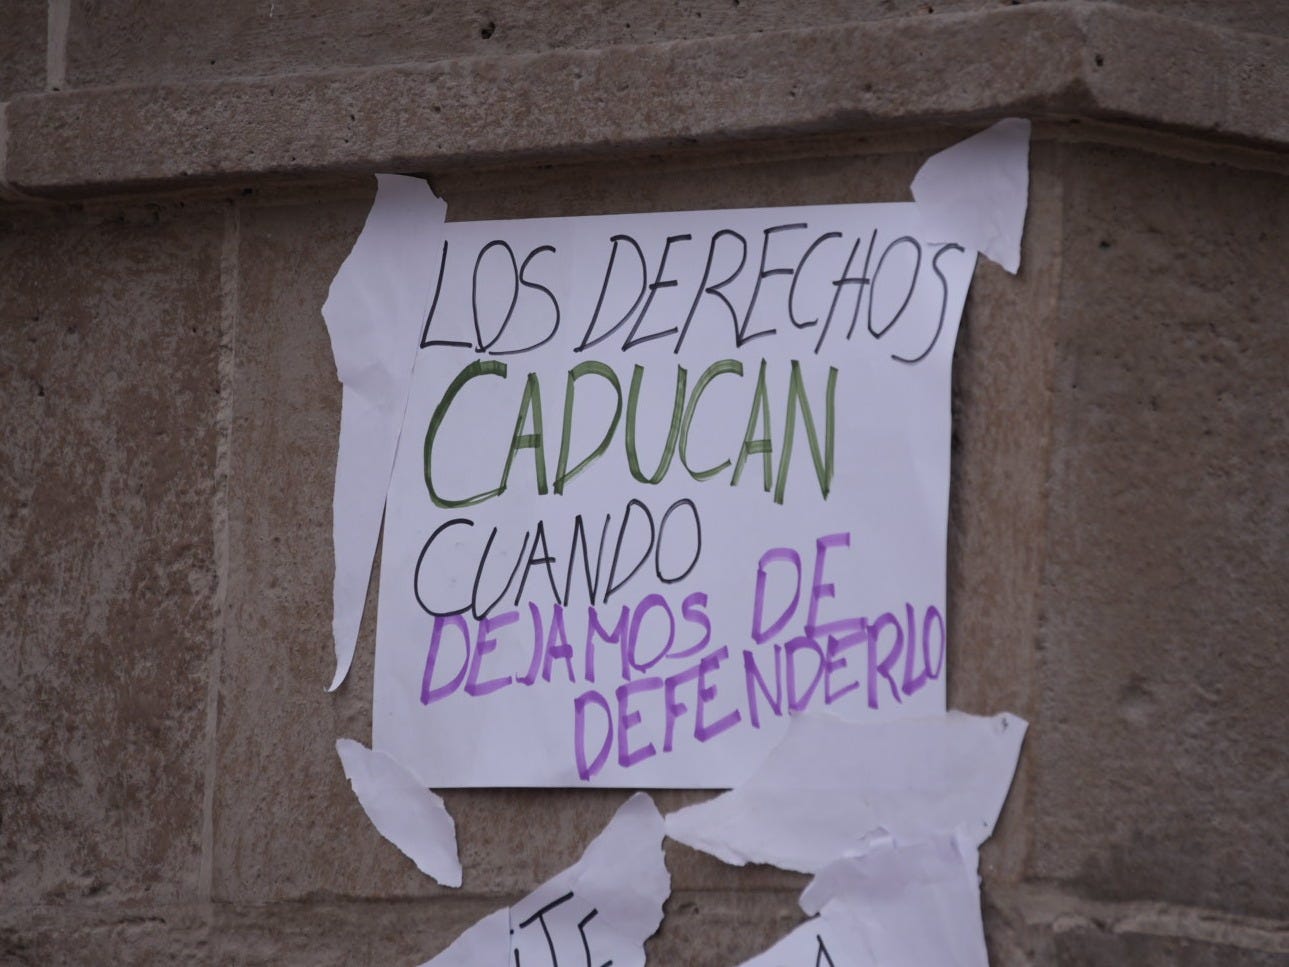 LOS DERECHOS
CADUCAN
CUANDO
DEJAMOS DE
DEFENDERLO
¡TE
A